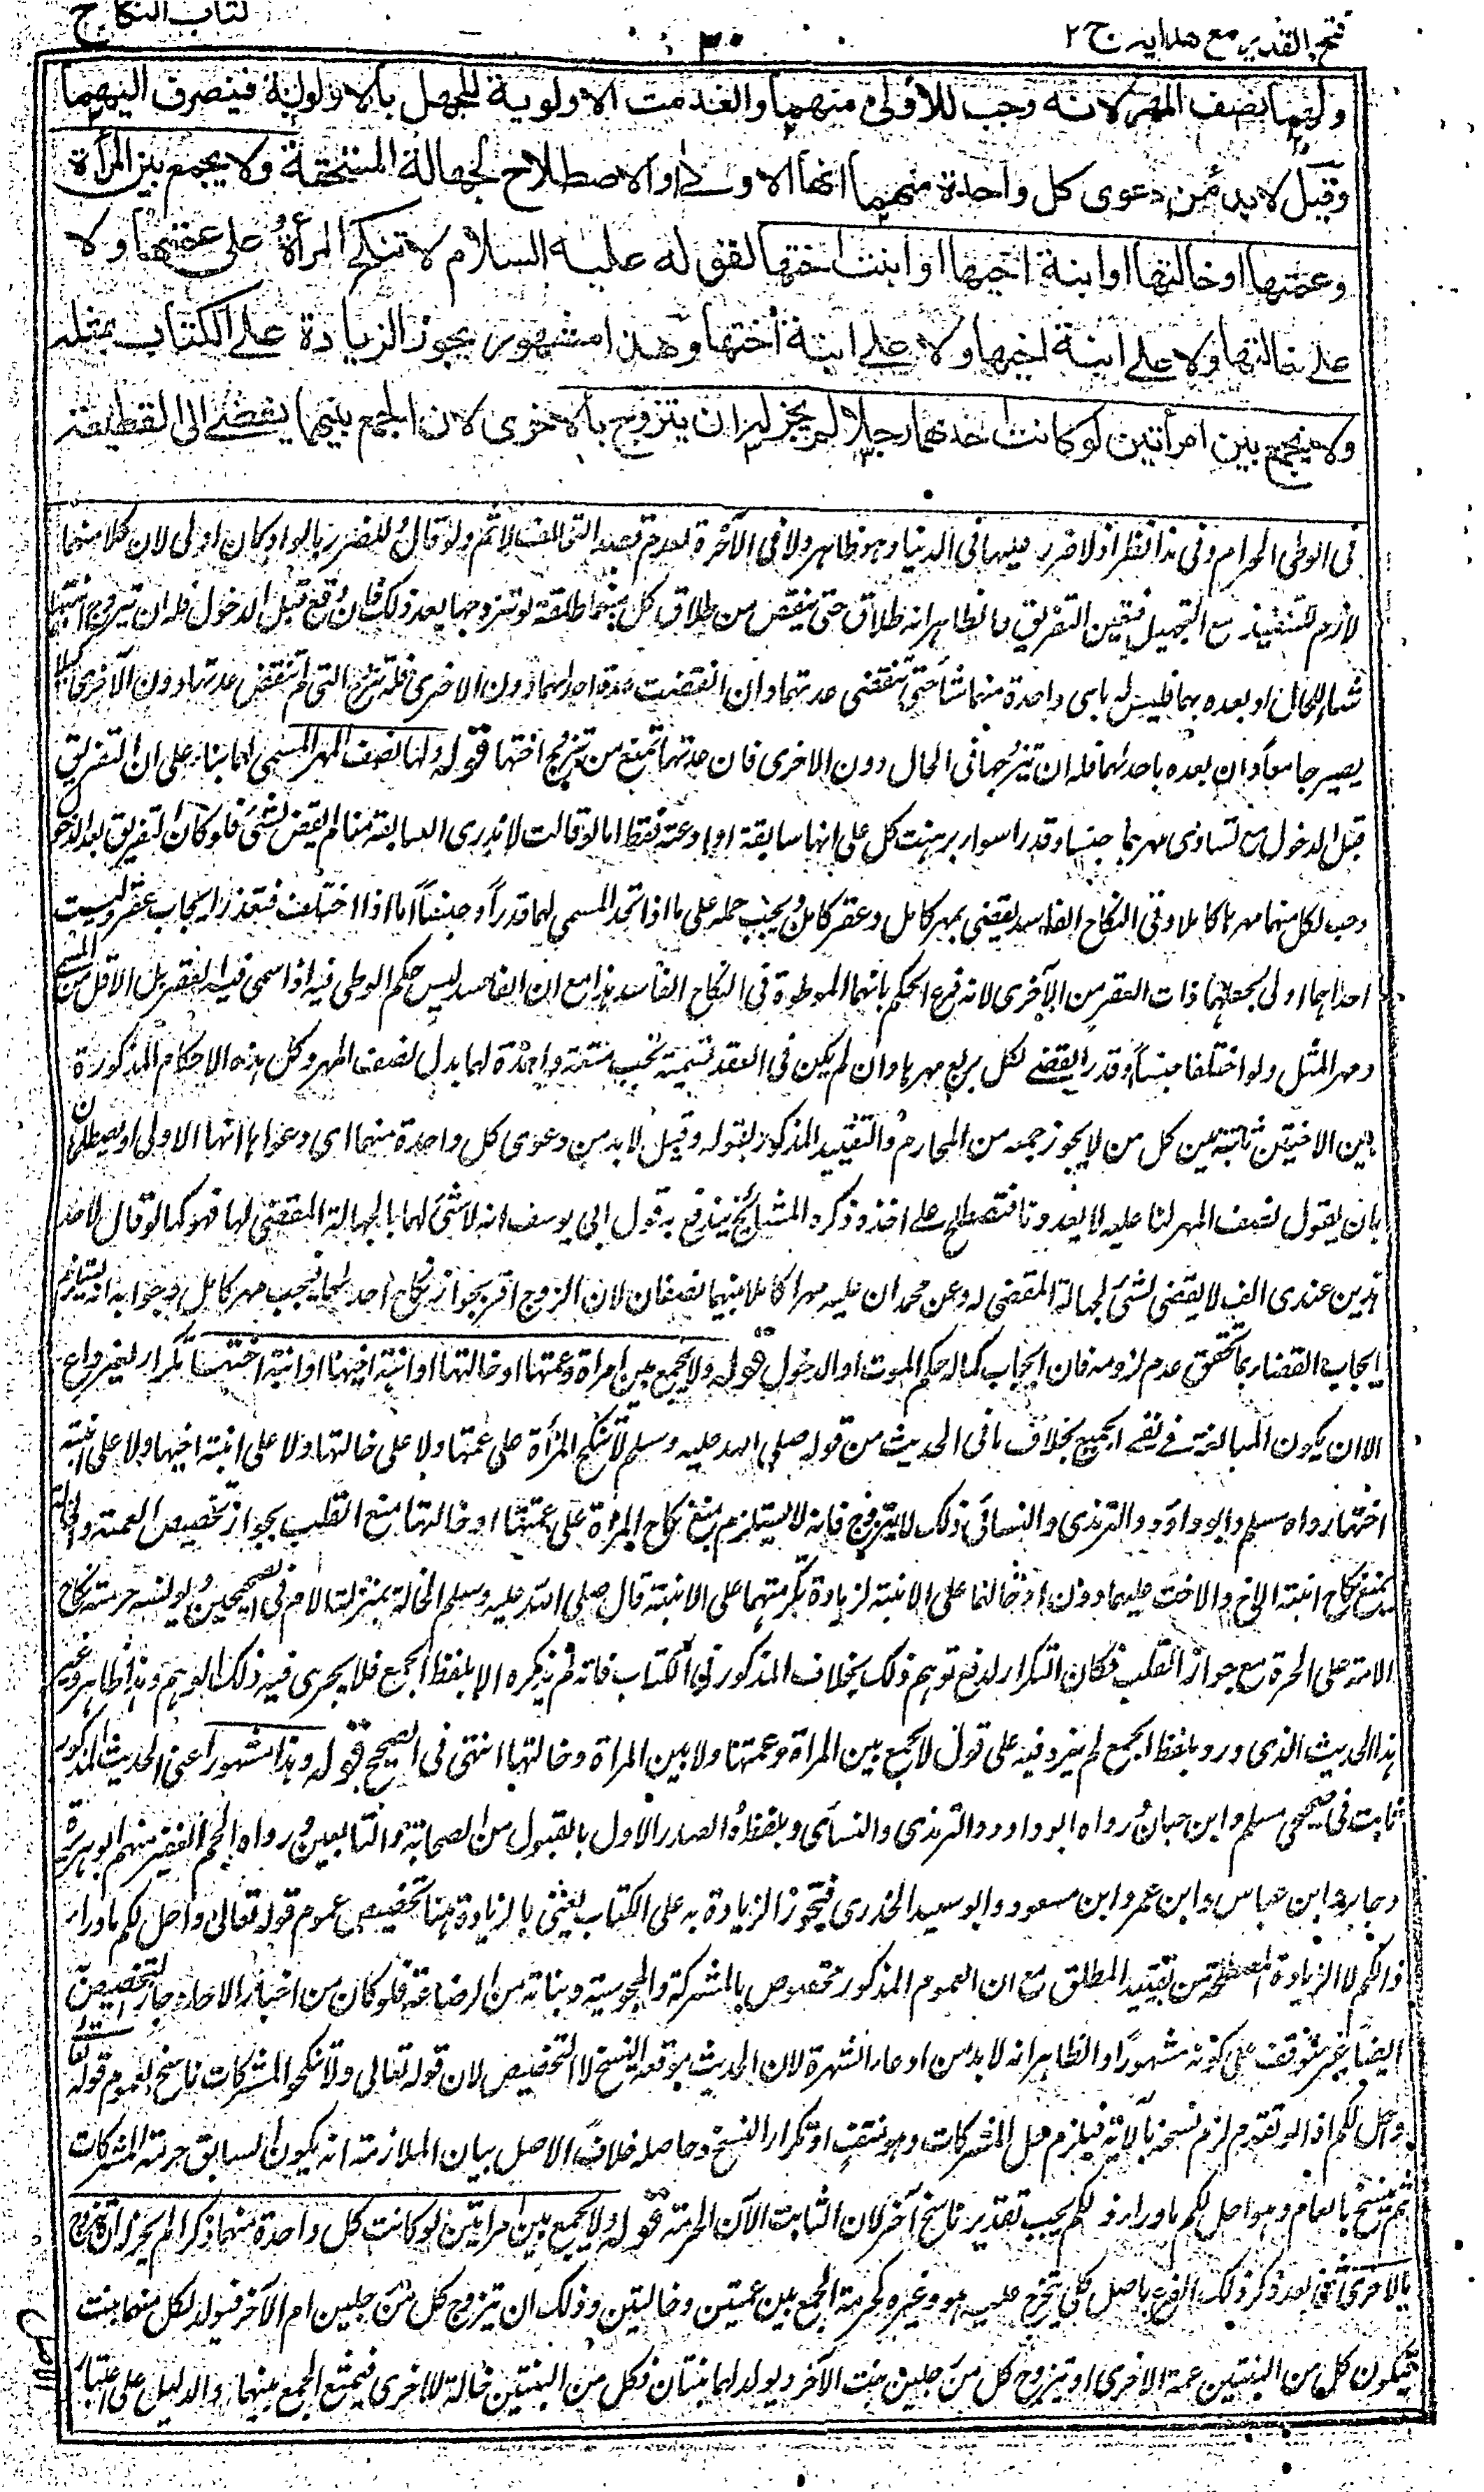 فتح القدير مع هدايه ج ٢
٣٠
كتاب النكاح
ولهما نصف المهر لانه وجب للأولى منهما وانعدمت الاولوية للجهل بالاولوية فينصرف اليهما
وقيل لا بد من دعوى كل واحدة منهما انها الاولى او الاصطلاح لجهالة المستحقة ولا يجمع بين المرأة
وعمتها او خالتها او ابنة اخيها او ابنة اختها لقوله عليه السلام لا تنكح المرأة على عمتها ولا
على خالتها ولا على ابنة اخيها ولا على ابنة اختها وهذا مشهور يجوز الزيادة على الكتاب بمثله
ولا يجمع بين امرأتين لو كانت احدهما رجلا لم يجز له ان يتزوج بالاخرى لان الجمع بينهما يفضي الى القطيعة
فى الوطى الحرام وفى هذا نظر اذ لا ضرر عليها فى الدنيا وهو ظاهر ولا فى الآخرة لعدم قصد التخالف لا ثم ولو قال للضرر بالواو كان اولى لان كلا منهما
لازم للتنفيذ مع التجهيل فتعين التفريق والظاهر انه طلاق حتى ينقص من طلاق كل منهما طلقة لو تزوجها بعد ذلك فان وقع قبل الدخول فله ان يتزوج ايتهما
شاء للحال او بعده بهما فليس له باى واحدة منهما شاء حتى تنقضى عدتهما وان انقضت عدة احدهما دون الاخرى فله تزوج التى لم تنقض عدتها دون الاخرى كيلا
يصير جامعا وان بعده باحدهما فله ان يتزوجها فى الحال دون الاخرى فان عدتها تمنع من تزوج اختها قوله ولهما نصف المهر المسمى لهما بناء على ان التفريق
قبل الدخول مع تساوى مهريهما جنسا وقدرا سواء برهنت كل على انها سابقة او ادعته فقط اما لو قالت لا ندرى السابقة منا لم يقض لشىء فلو كان التفريق بعد الدخول
وجب لكل منهما مهرها كاملا وفى النكاح الفاسد يقضى بمهر كامل وعقر كامل ويجب حمله على ما اذا اتحد المسمى لهما قدرا وجنسا اما اذا اختلف فتعذر ايجاب عقر وليست
احداهما اولى بجعلهما ذات العقر من الآخرى لانه فرع الحكم بانها الموطوءة فى النكاح الفاسد هذا مع ان الفاسد ليس حكم الوطى فيه اذا سمى فيه العقر بل الاقل من المسمى
ومهر المثل ولو اختلفا جنسا وقدرا يقضى لكل بربع مهرها وان لم يكن فى العقد تسمية تجب متعة واحدة لهما بدل نصف المهر وكل هذه الاحكام المذكورة
بين الاختين ثابتة بين كل من لا يجوز جمعه من المحارم والتقييد المذكور بقوله وقيل لا بد من دعوى كل واحدة منهما اى دعواها انها الاولى او يصطلحان
بان يقول نصف المهر لنا عليه لا يعدونا فنصطلح على اخذه وذكره المشايخ يندفع به قول ابى يوسف انه لا شىء لهما بالجهالة المقضى لها فهو كما لو قال لاحد
هذين عندى الف لا يقضى لشىء لجهالة المقضى له وعن محمد ان عليه مهرا كاملا بينهما نصفان لان الزوج اقر بجواز نكاح احدهما فيجب مهر كامل وجوابه انه يستلزم
ايجاب القضاء بما تحقق عدم لزومه فان ايجاب كماله حكم الموت او الدخول قوله ولا يجمع بين امراة وعمتها او خالتها او ابنة اخيها او ابنة اختها تكرار لغير داع
الا ان يكون المبالغة فى نفى الجمع بخلاف ما فى الحديث من قوله صلى الله عليه وسلم لا تنكح المرأة على عمتها ولا على خالتها ولا على ابنة اخيها ولا على ابنة
اختها رواه مسلم وابو داود والترمذى والنسائى ذلك لا يتزوج فانه لا يستلزم منع نكاح المرأة على عمتها او خالتها منع القلب بجواز تخصيص العمة والخالة
يمنع نكاح ابنة الاخ والاخت عليهما دون ادخالهما على الابنة لزيادة تكرمتهما على الابنة قال صلى الله عليه وسلم الخالة بمنزلة الام فى الصحيحين ويونسه حرمة نكاح
الامة على الحرة مع جواز القلب فكان التكرار لدفع توهم ذلك بخلاف المذكور فى الكتاب فانه لم يذكره الا بلفظ الجمع فلا يجرى فيه ذلك الوهم وهذا ظاهر وغير
هذا الحديث الذى ورد بلفظ الجمع لم يزد فيه على قول لا يجمع بين المراة وعمتها ولا بين المراة وخالتها انتهى فى الصحيح قوله وهذا مشهور اعنى الحديث المذكور
ثابت فى صحيحى مسلم وابن حبان رواه ابو داود والترمذى والنسائى وبلفظه الصدر الاول بالقبول من الصحابة والتابعين ورواه الجم الغفير منهم ابو هريرة
وجابر وابن عباس وابن عمر وابن مسعود وابو سعيد الخدرى فتجوز الزيادة به على الكتاب يعنى بالزيادة هنا تخصيص عموم قوله تعالى واحل لكم ما وراء
ذالكم لا الزيادة المصطلحة من تقييد المطلق مع ان العموم المذكور مخصوص بالمشركة والمجوسية وبناته من الرضاعة فلو كان من اخبار الاحاد جاز التخصيص به
ايضا غير متوقف على كونه مشهورا والظاهر انه لا بد من ادعاء الشهرة لان الحديث موقعه النسخ لا التخصيص لان قوله تعالى ولا تنكحوا المشركات ناسخ لعموم قوله تعالى
واحل لكم اذ لو تقدم لزم نسخه بالآية فيلزم حل المشركات وهو منتف او تكرار النسخ وحاصله خلاف الاصل بيان الملازمة انه يكون السابق حرمة المشركات
ثم ينسخ بالعام وهو احل لكم ما وراء ذلكم يجب تقدير ناسخ آخر لان الثابت الآن الحرمة قوله ولا يجمع بين امراتين لو كانت كل واحدة منهما ذكرا لم يجز له ان يتزوج
بالاخرى ثنى بعد ذكر ذلك الفرع باصل كلى يتخرج عليه هو وغيره كحرمة الجمع بين عمتين وخالتين وذلك ان يتزوج كل من رجلين ام الآخر فيولد لكل منهما بنت
فيكون كل من البنتين عمة الاخرى او يتزوج كل من رجلين بنت الآخر ويولد لهما بنتان فكل من البنتين خالة للاخرى فيمتنع الجمع بينهما والدليل على اعتبار
الاصل